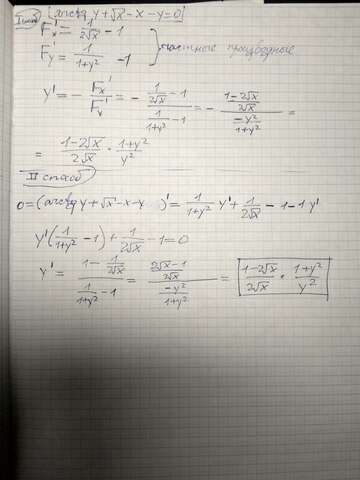 I способ [arctg y + √x - x - y = 0]
F'x = 1/(2√x) - 1
F'y = 1/(1+y²) - 1 } частные производные
y' = - F'x/F'y = - (1/(2√x) - 1)/(1/(1+y²) - 1) = - ((1-2√x)/(2√x))/(-y²/(1+y²)) =
= (1-2√x)/(2√x) · (1+y²)/y²
II способ
0 = (arctg y + √x - x - y)' = 1/(1+y²) y' + 1/(2√x) - 1 - 1 y'
y'(1/(1+y²) - 1) + 1/(2√x) - 1 = 0
y' = (1 - 1/(2√x))/(1/(1+y²) - 1) = ((2√x - 1)/(2√x))/(-y²/(1+y²)) = (1-2√x)/(2√x) · (1+y²)/y²